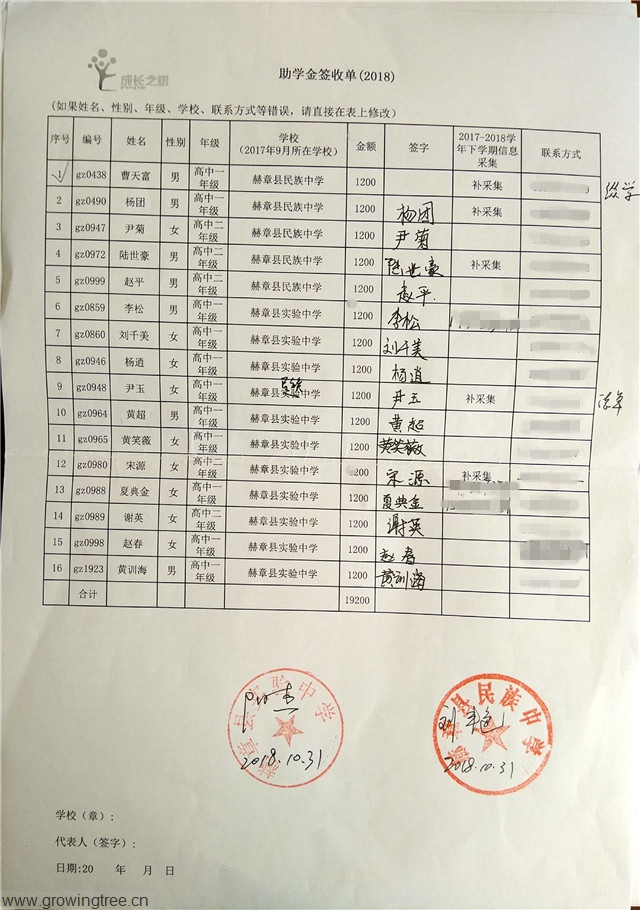 成长之树
助学金签收单(2018)
(如果姓名、性别、年级、学校、联系方式等错误，请直接在表上修改)
序号 编号 姓名 性别 年级 学校(2017年9月所在学校) 金额 签字 2017-2018学年下学期信息采集 联系方式
1 gz0438 曹天富 男 高中一年级 赫章县民族中学 1200 补采集
2 gz0490 杨团 男 高中一年级 赫章县民族中学 1200 杨团 补采集
3 gz0947 尹菊 女 高中二年级 赫章县民族中学 1200 尹菊
4 gz0972 陆世豪 男 高中二年级 赫章县民族中学 1200 陆世豪 补采集
5 gz0999 赵平 男 高中二年级 赫章县民族中学 1200 赵平.
6 gz0859 李松 男 高中一年级 赫章县实验中学 1200 李松
7 gz0860 刘千美 女 高中一年级 赫章县实验中学 1200 刘千美
8 gz0946 杨逍 女 高中一年级 赫章县实验中学 1200 杨逍
9 gz0948 尹玉 女 高中一年级 赫章县实验中学 1200 尹玉 补采集
10 gz0964 黄超 男 高中一年级 赫章县实验中学 1200 黄超
11 gz0965 黄笑薇 女 高中一年级 赫章县实验中学 1200 黄笑薇
12 gz0980 宋源 女 高中二年级 赫章县实验中学 1200 宋源 补采集
13 gz0988 夏典金 女 高中一年级 赫章县实验中学 1200 夏典金
14 gz0989 谢英 女 高中二年级 赫章县实验中学 1200 谢英
15 gz0998 赵春 女 高中一年级 赫章县实验中学 1200 赵春
16 gz1923 黄训海 男 高中一年级 赫章县实验中学 1200 黄训海
合计 19200
赫章县实验中学
2018.10.31
赫章县民族中学
2018.10.31
学校（章）:
代表人（签字）:
日期:20 年 月 日
www.growingtree.cn